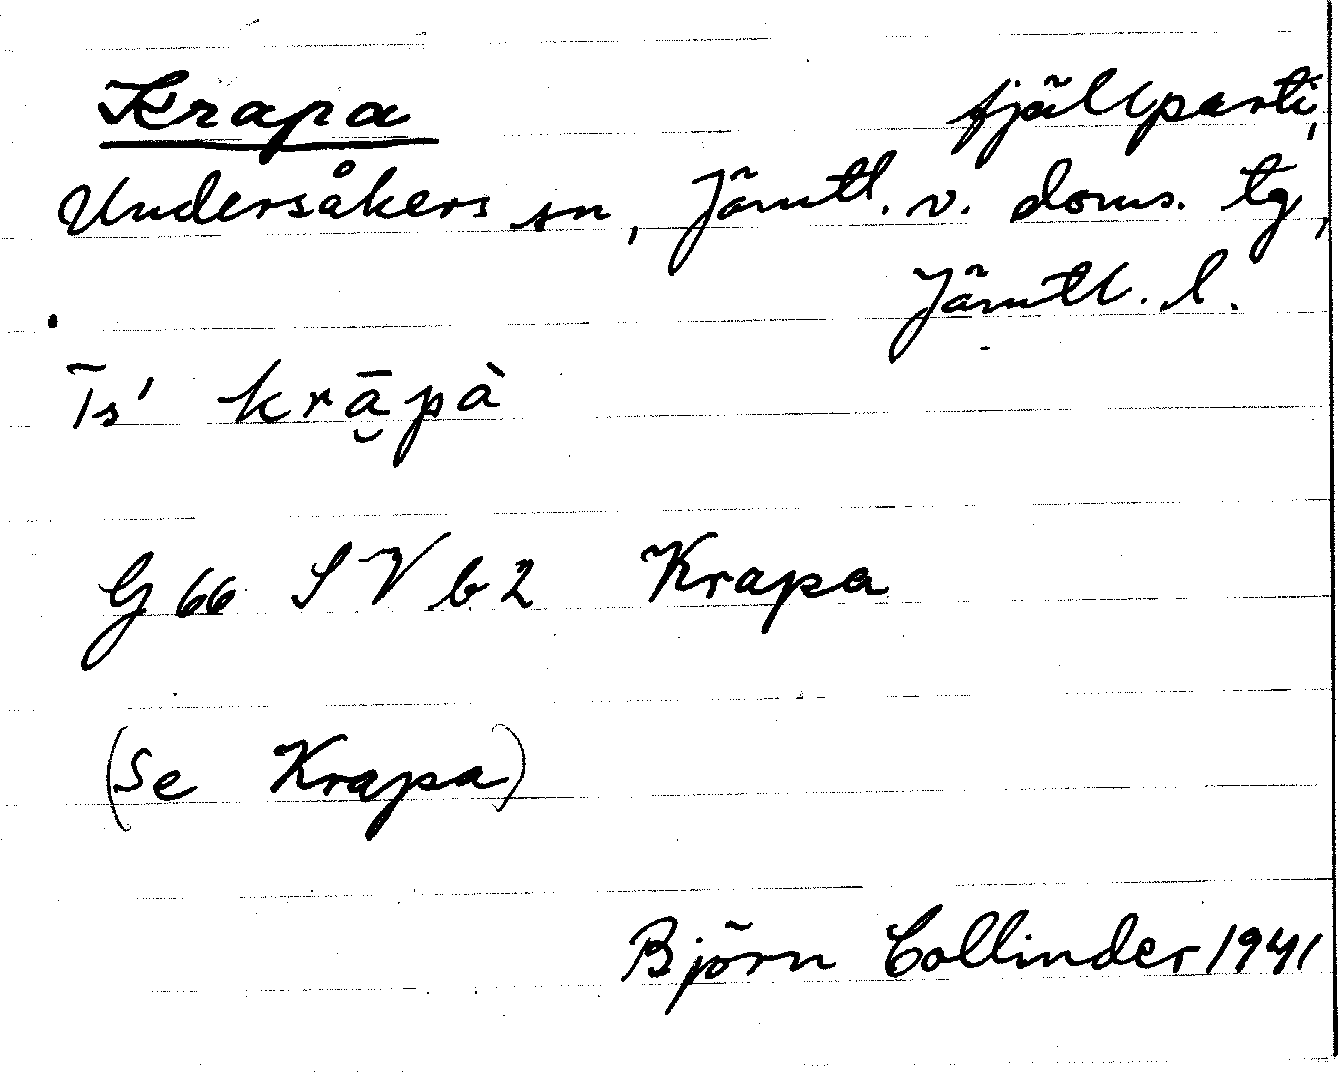 Krapa fjällparti,
Undersåkers sn, Jämtl. v. doms. tg,
Jämtl. l.
Ts' krā̮pà
G 66 S V b 2 Krapa
(Se Krapa)
Björn Collinder 1941